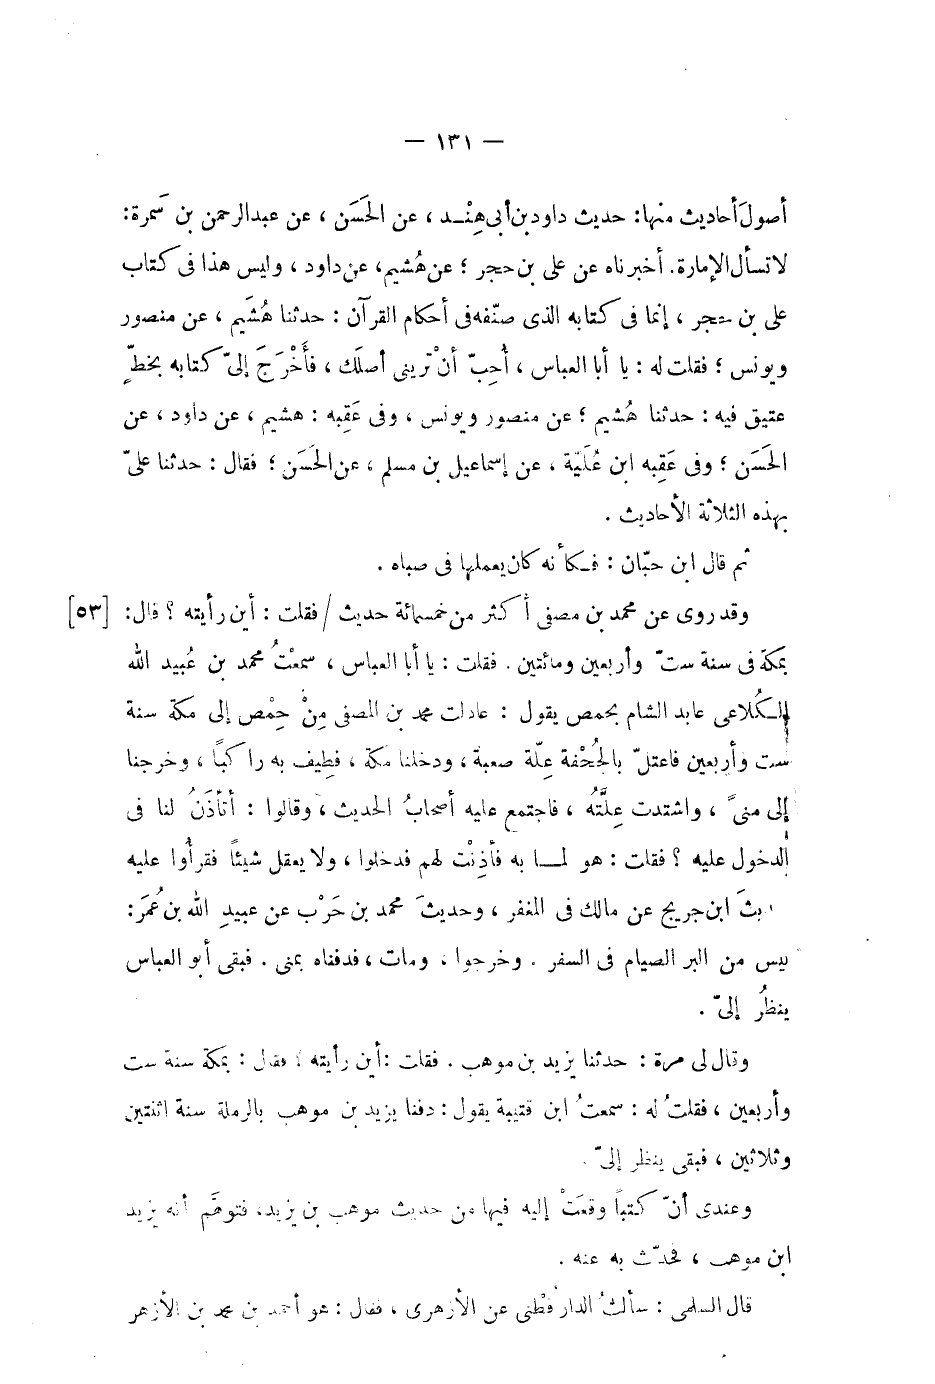 — ١٣١ —
أصولَ أحاديث منها: حديث داود بن أبى هِنْــد ، عن الحَسَن ، عن عبدالرحمن بن سَمرة:
لا تسأل الإمارة. أخبر ناه عن على بن حجر ؛ عن هُشيم، عن داود ، وليس هذا فى كتاب
على بن حجر ، إنما فى كتابه الذى صنّفه فى أحكام القرآن : حدثنا هُشَيم ، عن منصور
ويونس ؛ فقلت له : يا أبا العباس ، أُحِبّ أنْ تُرينى أصلَك ، فأَخْرَجَ إلىّ كتابه بخطٍّ
عتيق فيه : حدثنا هُشيم ؛ عن منصور ويونس ، وفى عَقِبه : هشيم ، عن داود ، عن
الحَسَن ؛ وفى عَقِبه ابن عُلَيّة ، عن إسماعيل بن مسلم ، عن الحَسَن ؛ فقال : حدثنا علىّ
بهذه الثلاثة الأحاديث .
ثم قال ابن حبّان : فـكأنه كان يعملها فى صباه .
وقد روى عن محمد بن مصفى أكثر من خمسمائة حديث / فقلت : أين رأيته ؟ قال: [٥٣]
بمكة فى سنة ستّ وأربعين ومائتين . فقلت : يا أبا العباس ، سمعْتُ محمد بن عُبيد الله
الـكُلاعى عابد الشام بحمص يقول : عادلت محمد بن المصفى مِنْ حِمْص إلى مكة سنة
ست وأربعين فاعتلّ بالجُحْفة عِلّة صعبة ، ودخلنا مكة ، فطِيف به راكبًا ، وخرجنا
إلى منىً ، واشتدت عِلَّتُه ، فاجتمع عليه أصحابُ الحديث ، وقالوا : أتأذَنُ لنا فى
الدخول عليه ؟ فقلت : هو لمـــا به فأذِنْت لهم فدخلوا ، ولا يعقل شيئًا فقرأُوا عليه
بثَ ابن جريج عن مالك فى المغفر ، وحديثَ محمد بن حَرْب عن عبيدِ الله بن عُمَرَ:
ليس من البر الصيام فى السفر . وخرجوا ، ومات ، فدفناه بمنى . فبقى أبو العباس
ينظُر إلىّ .
وقال لى مرة : حدثنا يزيد بن موهب . فقلت : أين رأيته ؛ فقال : بمكة سنة ست
وأربعين ، فقلتُ له : سمعتُ ابن قتيبة يقول : دفنا يزيد بن موهب بالرملة سنة اثنتين
وثلاثين ، فبقى ينظر إلىّ .
وعندى أنّ كتباً وقعَتْ إليه فيها من حديث موهب بن يزيد، فتوهَّم أنه يزيد
ابن موهب ، فحدّث به عنه .
قال السلمى : سألتُ الدارقُطْنى عن الأزهرى ، فقال : هو أحمد بن محمد بن الأزهر